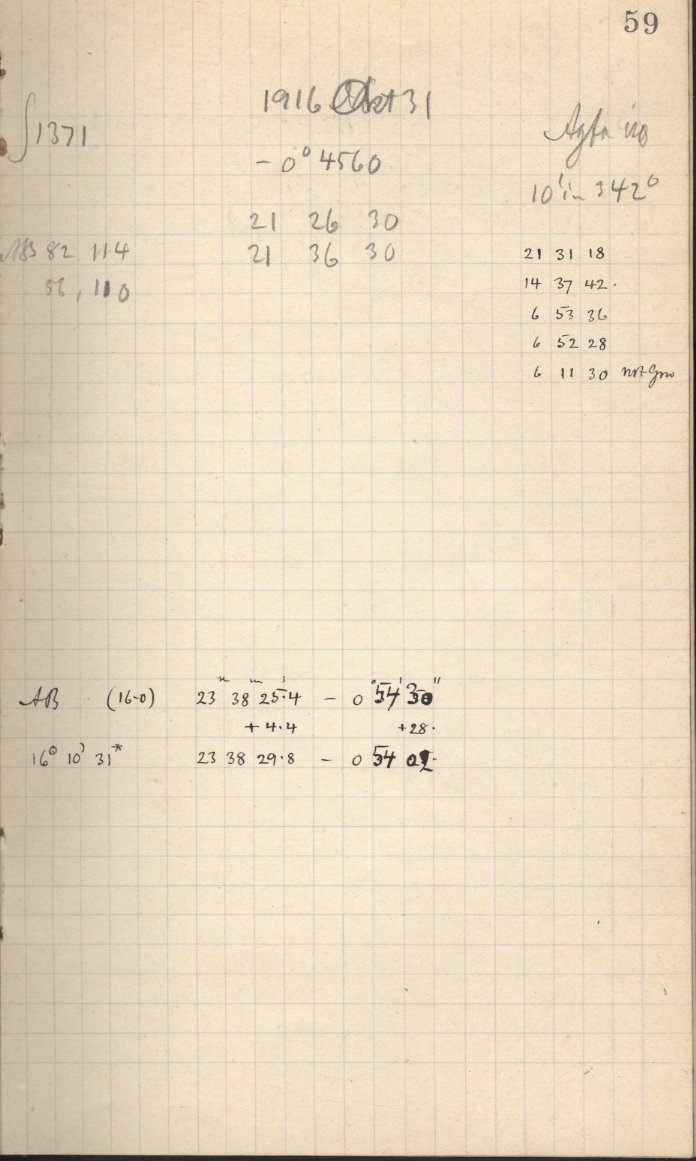 59
1916 Okt 31
∫1371
Agfa iso
- 0° 4560
10' in 342°
21 26 30
AB 82 114
21 36 30
56, 110
21 31 18
14 37 42.
6 53 36
6 52 28
6 11 30 not Grw
h m s ° ' "
AB (16.0) 23 38 25.4 - 0 54 30
+ 4.4 + 28.
16° 10' 31* 23 38 29.8 - 0 54 02.